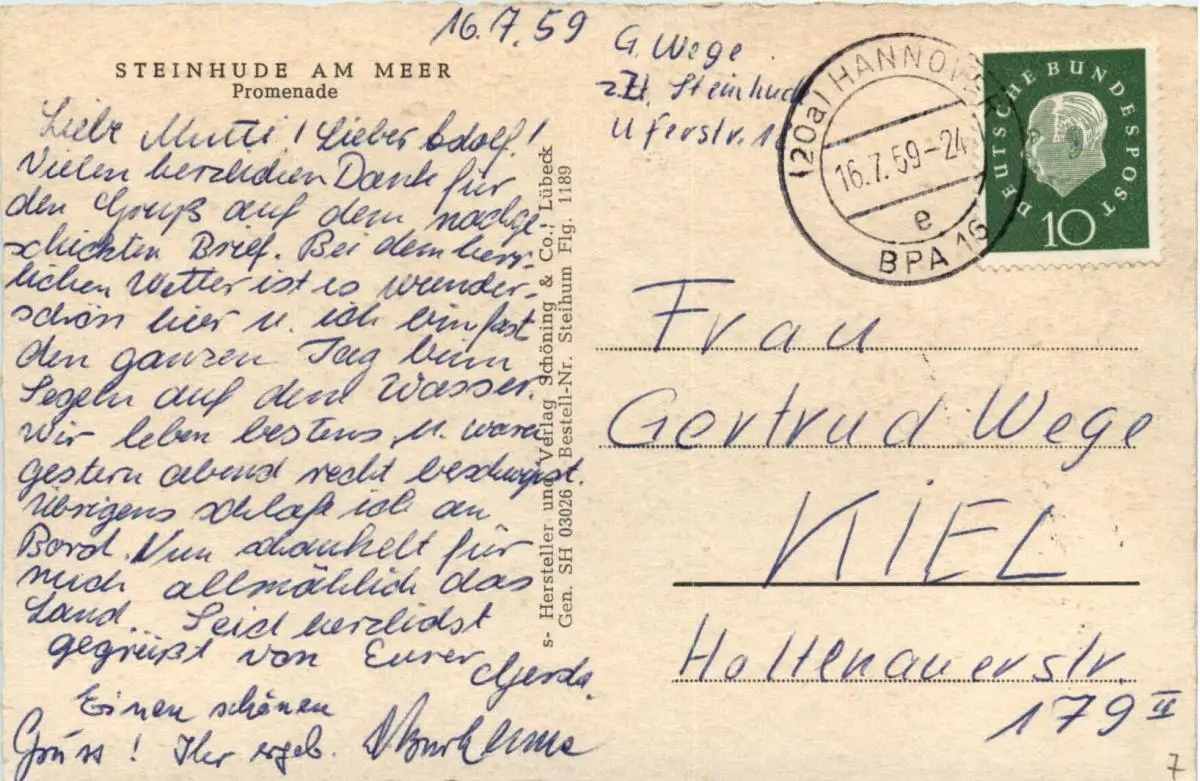 16.7.59
STEINHUDE AM MEER
Promenade
Liebe Mutti! Lieber Adolf!
Vielen herzlichen Dank für
den Gruß auf dem nachge-
schickten Brief. Bei dem herr-
lichen Wetter ist es wunder-
schön hier u. ich bin fast
den ganzen Tag beim
Segeln auf dem Wasser.
Wir leben bestens u. waren
gestern abend recht beschwipst.
Übrigens schlafe ich an
Bord. Nun schaukelt für
mich allmählich das
Land. Seid herzlichst
gegrüßt von Eurer Gerda.
Einen schönen
Gruss! Ihr ergeb.
s- Hersteller und Verlag Schöning & Co., Lübeck
Gen. SH 03026 Bestell-Nr. Steihum Flg. 1189
G. Wege
z.Zt. Steinhude
Uferstr.
(20a) HANNOVER
16.7.59-24
e
BPA 16
DEUTSCHE BUNDESPOST
10
Frau
Gertrud Wege
KIEL
Holtenauerstr.
179 II
7